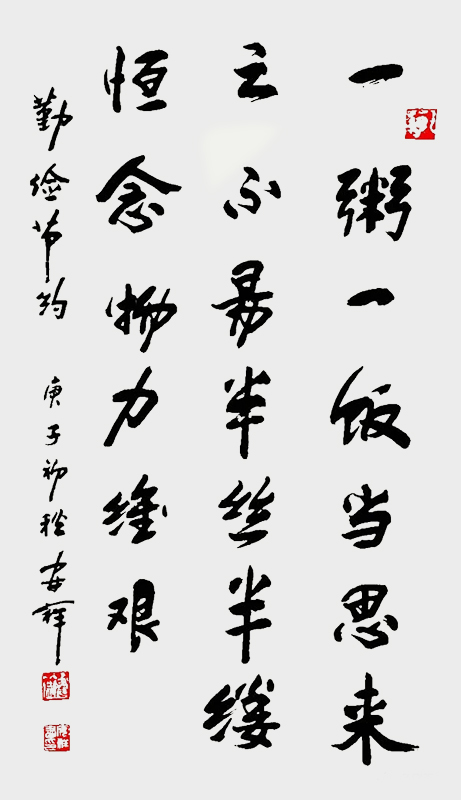 一粥一饭当思来
之不易半丝半缕
恒念物力维艰
勤俭节约 庚子初秋安祥